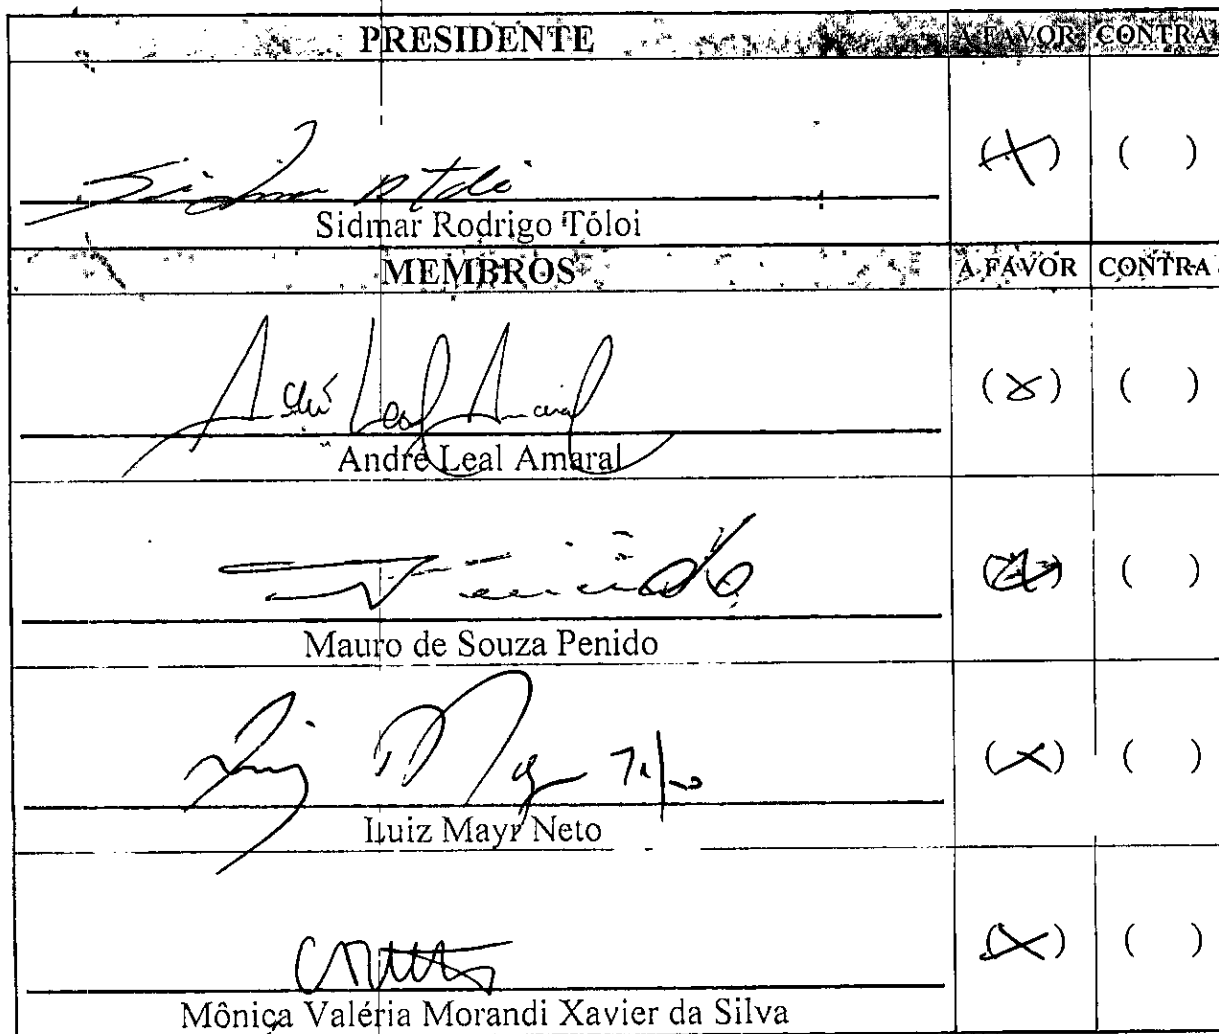 PRESIDENTE A FAVOR CONTRA
(X) ( )
Sidmar Rodrigo Tóloi
MEMBROS A FAVOR CONTRA
André Leal Amaral (X) ( )
André Leal Amaral
(X) ( )
Mauro de Souza Penido
(X) ( )
Luiz Mayr Neto
(X) ( )
Mônica Valéria Morandi Xavier da Silva